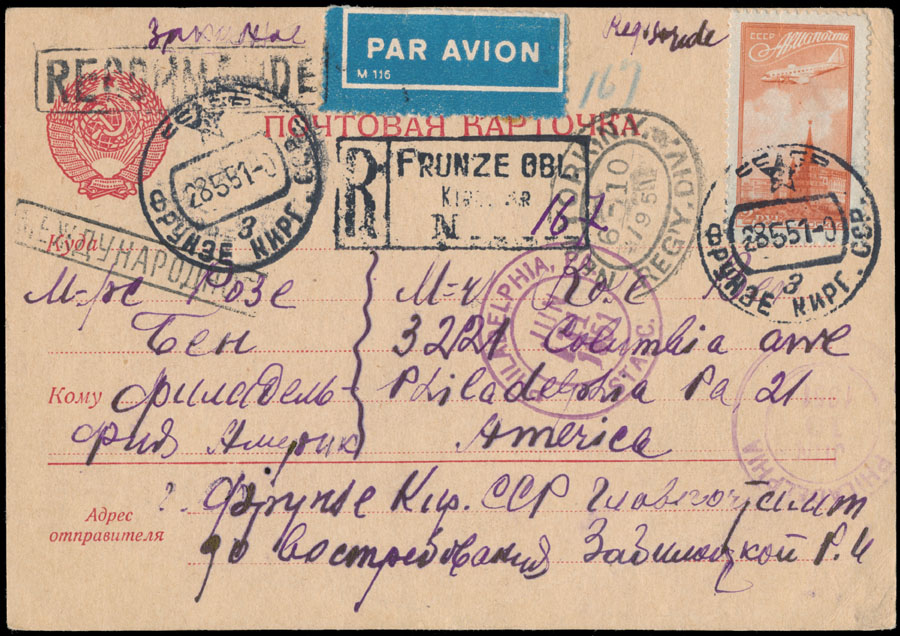 Заказное
PAR AVION
M 116
Registeride
СССР Авиапочта
167
ПОЧТОВАЯ КАРТОЧКА
СССР
28551-0
3
ФРУНЗЕ КИРГ. ССР.
R FRUNZE OBL
N 167
REGIY. DIV.
6-10
СССР
28551-0
3
ФРУНЗЕ КИРГ. ССР.
МЕЖДУНАРОДНОЕ
Куда
М-рс Розе
Бен
Кому Филадель-
фия Америк
М-
3221 Columbia awe
Philadelphia Pa. 21
America
PHILADELPHIA, PA.
JUN
1951
STA. C.
PHILADELPHIA
Адрес
отправителя
Фрунзе Кир. ССР Главпочтамт
до востребования Р. И